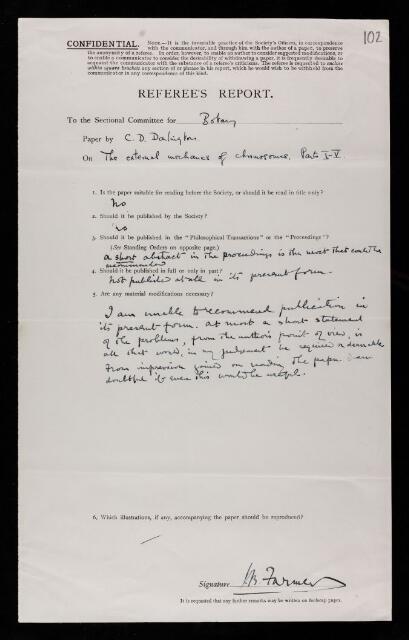 102
CONFIDENTIAL.
NOTE.—It is the invariable practice of the Society's Officers, in correspondence
with the communicator, and through him with the author of a paper, to preserve
the anonymity of a referee. In order, however, to enable an author to consider suggested modifications, or
to enable a communicator to consider the desirability of withdrawing a paper, it is frequently desirable to
acquaint the communicator with the substance of a referee's criticisms. The referee is requested to enclose
within square brackets any section of or phrase in his report, which he would wish to be withheld from the
communicator in any correspondence of this kind.
REFEREE'S REPORT.
To the Sectional Committee for Botany
Paper by C. D. Darlington
On The external mechanics of chromosomes. Parts I-V.
1. Is the paper suitable for reading before the Society, or should it be read in title only?
No
2. Should it be published by the Society?
No
3. Should it be published in the "Philosophical Transactions" or the "Proceedings"?
(See Standing Orders on opposite page.)
a short abstract in the proceedings is the most that could be
recommended
4. Should it be published in full or only in part?
Not published at all in its present form.
5. Are any material modifications necessary?
I am unable to recommend publication in
its present form. At most a short statement
of the problems, from the author's point of view, is
all that would, in my judgement be required or desirable
From impression gained on reading the paper I am
doubtful if even this would be useful.
6. Which illustrations, if any, accompanying the paper should be reproduced?
—
Signature J B Farmer
It is requested that any further remarks may be written on foolscap paper.